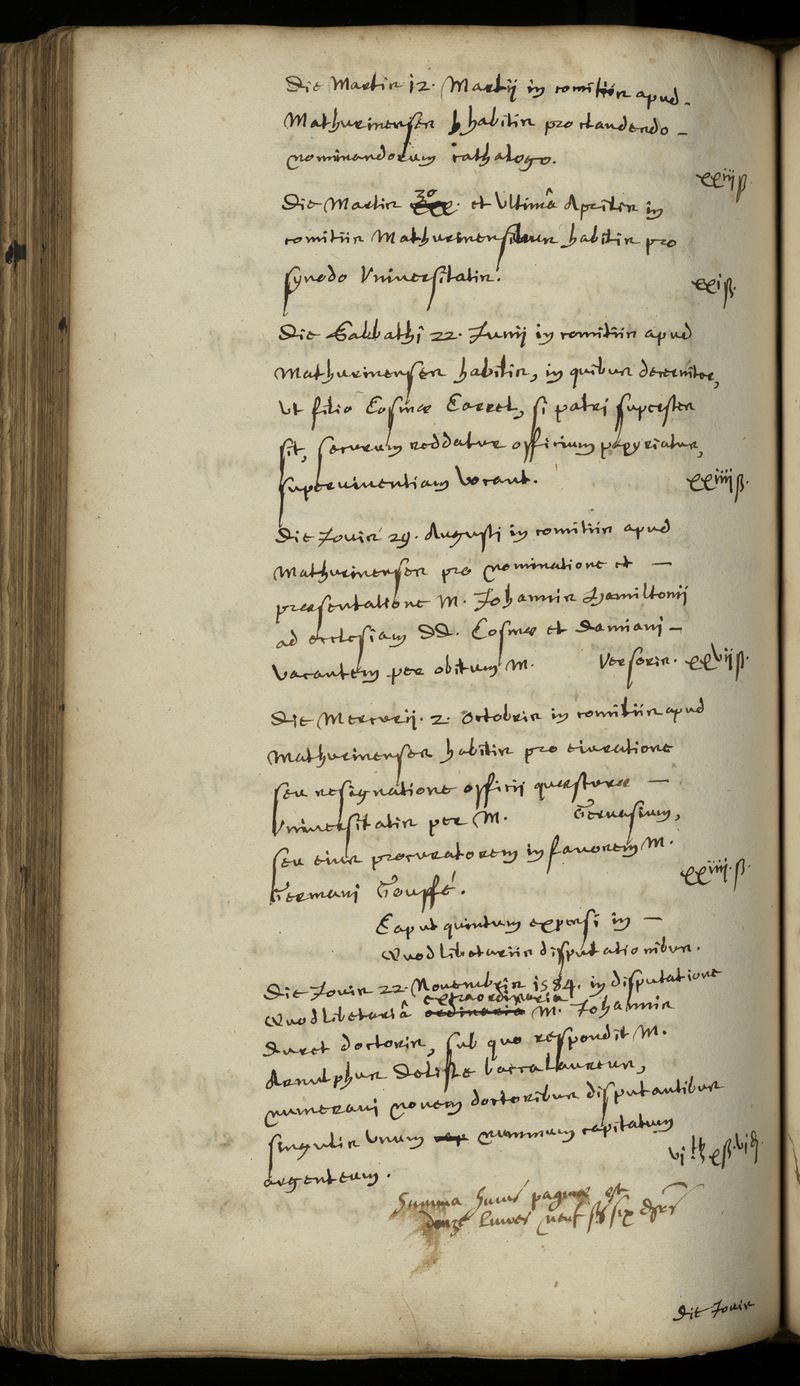 Die Martis 12. Martij in comitiis apud
Mathurinenses habitis pro claudendo
nominandorum cathalogo.
xxiiij ß
Die Martis 30 et ultimâ Aprilis in
comitiis Mathurinensibus habitis pro
synodo Universitatis.
xxi ß.
Die Sabbathi 22. Junij in comitiis apud
Mathurinenses habitis, in quibus decernitur,
ut filio Cosmæ Carrel, si patri superstes
sit, securum reddatur officium papyriatus,
superviventiam vocant.
xxiiij ß.
Die Jovis 29. Augusti in comitiis apud
Mathurinenses pro nominatione et
præsentatione M. Johannis Hamiltonij
ad ecclesiam DD. Cosmæ et Damiani
vacantem per obitum M. Versoris. xxvij ß.
Die Mercurij. 2. Octobris in comitiis apud
Mathurinenses habitis pro eiuratione
seu resignatione officij quæsturæ
Universitatis per M. Gervasium,
seu eius procuratorem in favorem M.
Germani Gouffé.
xxiiij. ß.
Caput quintum expensi in
Quodlibetariis disputationibus.
Die Jovis 22. Novembris 1584. in disputatione
Quodlibetariâ extraordinaria M. Johannis
Duret doctoris, sub quo respondit M.
Arnulphus Deliste baccalaureus,
numeravi novem doctoribus disputantibus
singulis unum nummum capitatum
argenteum.
vi lb x ß vi d
Summa huius paginæ est
douze livres neuf ß six d
Die Jovis